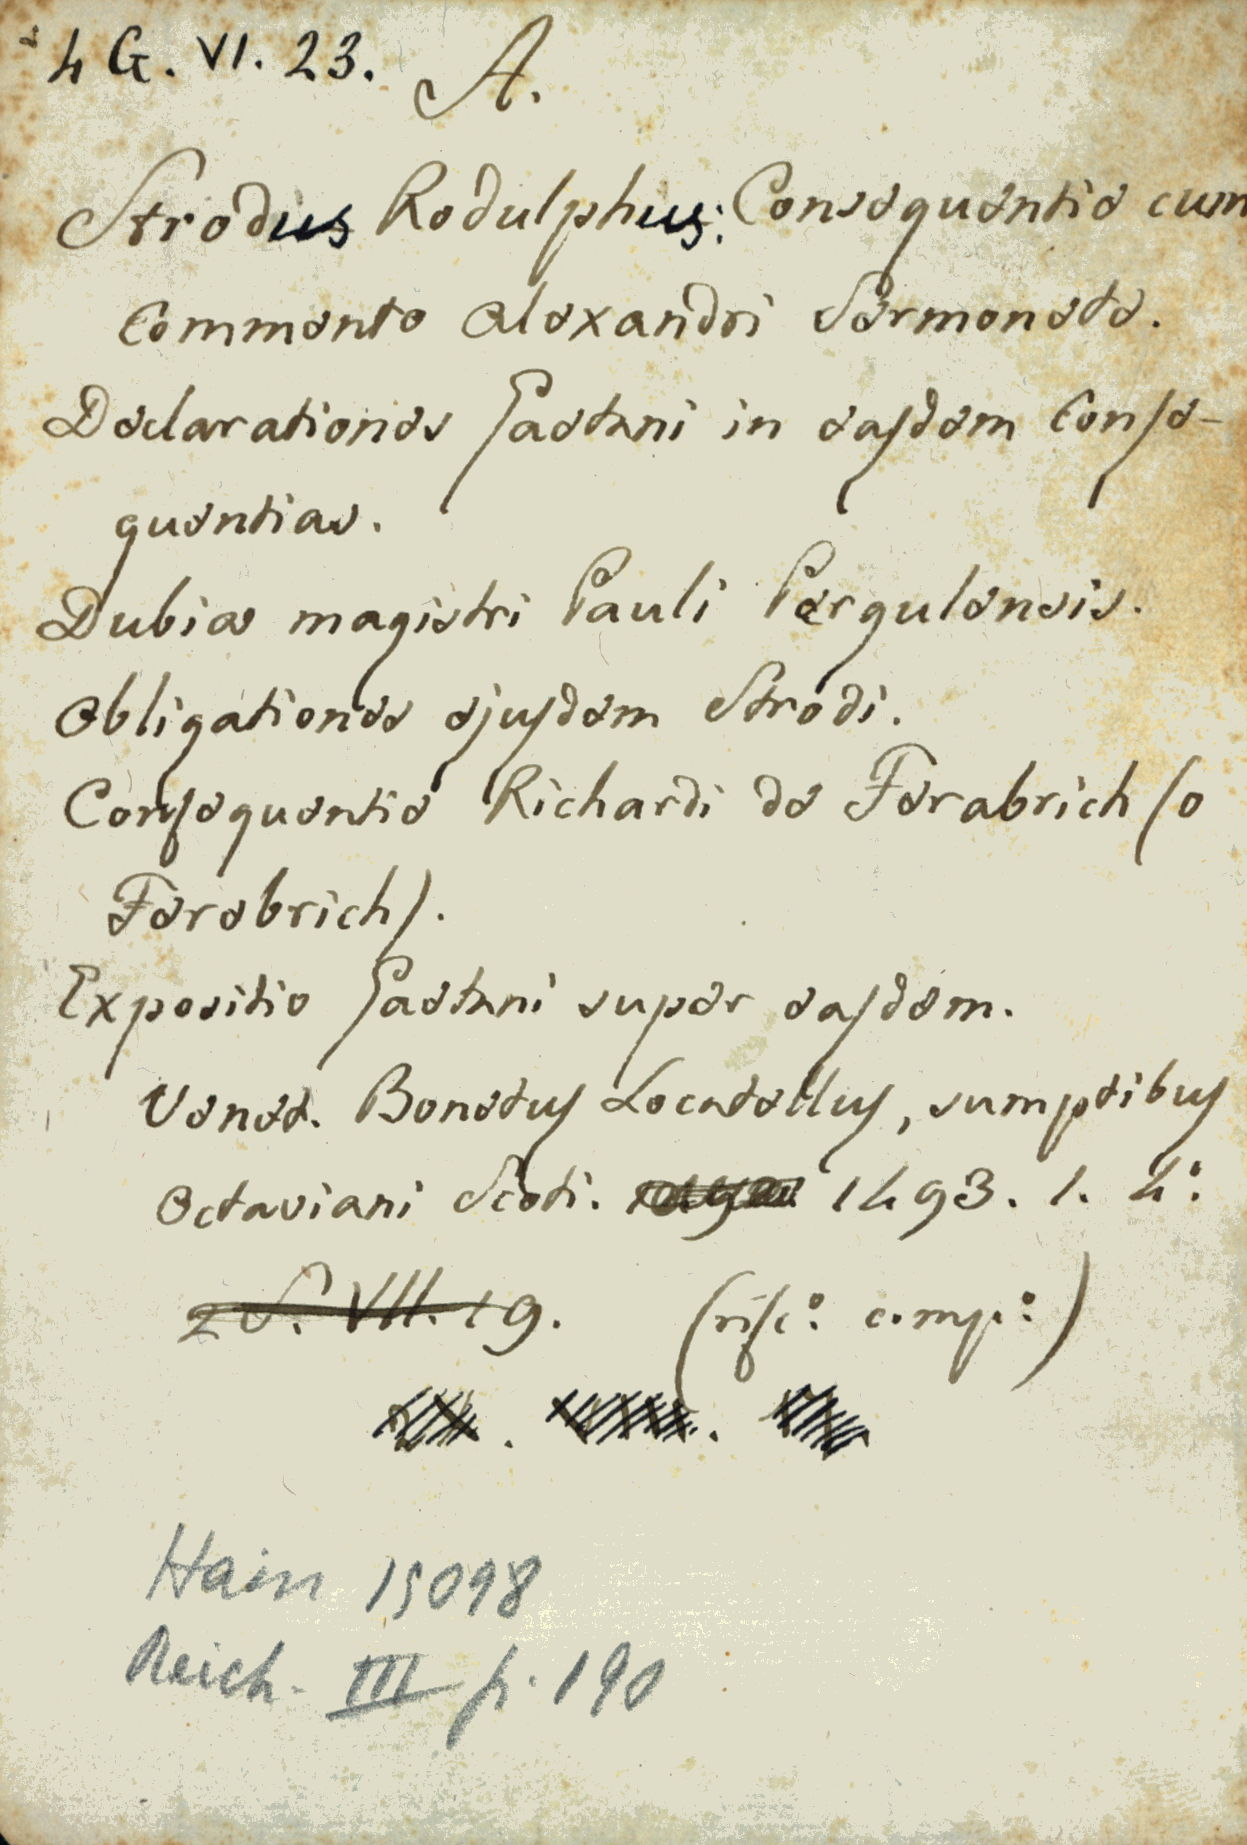 4 G. VI. 23. A.
Strodus Rodulphus: Consequentie cum
Commento Alexandri Sermonete.
Declarationes Gaetani in easdem Conse-
quentias.
Dubia magistri Pauli Pergulensis.
Obligationes ejusdem Strodi.
Consequentie Richardi de Ferabrich (o
Ferebrich).
Expositio Gaetani super easdem.
Venet. Bonetus Locatellus, sumptibus
Octaviani Scoti. 1493. 1. 4:
2 S. VII. 19. (risc:
Hain 15098
Reich. III p. 190